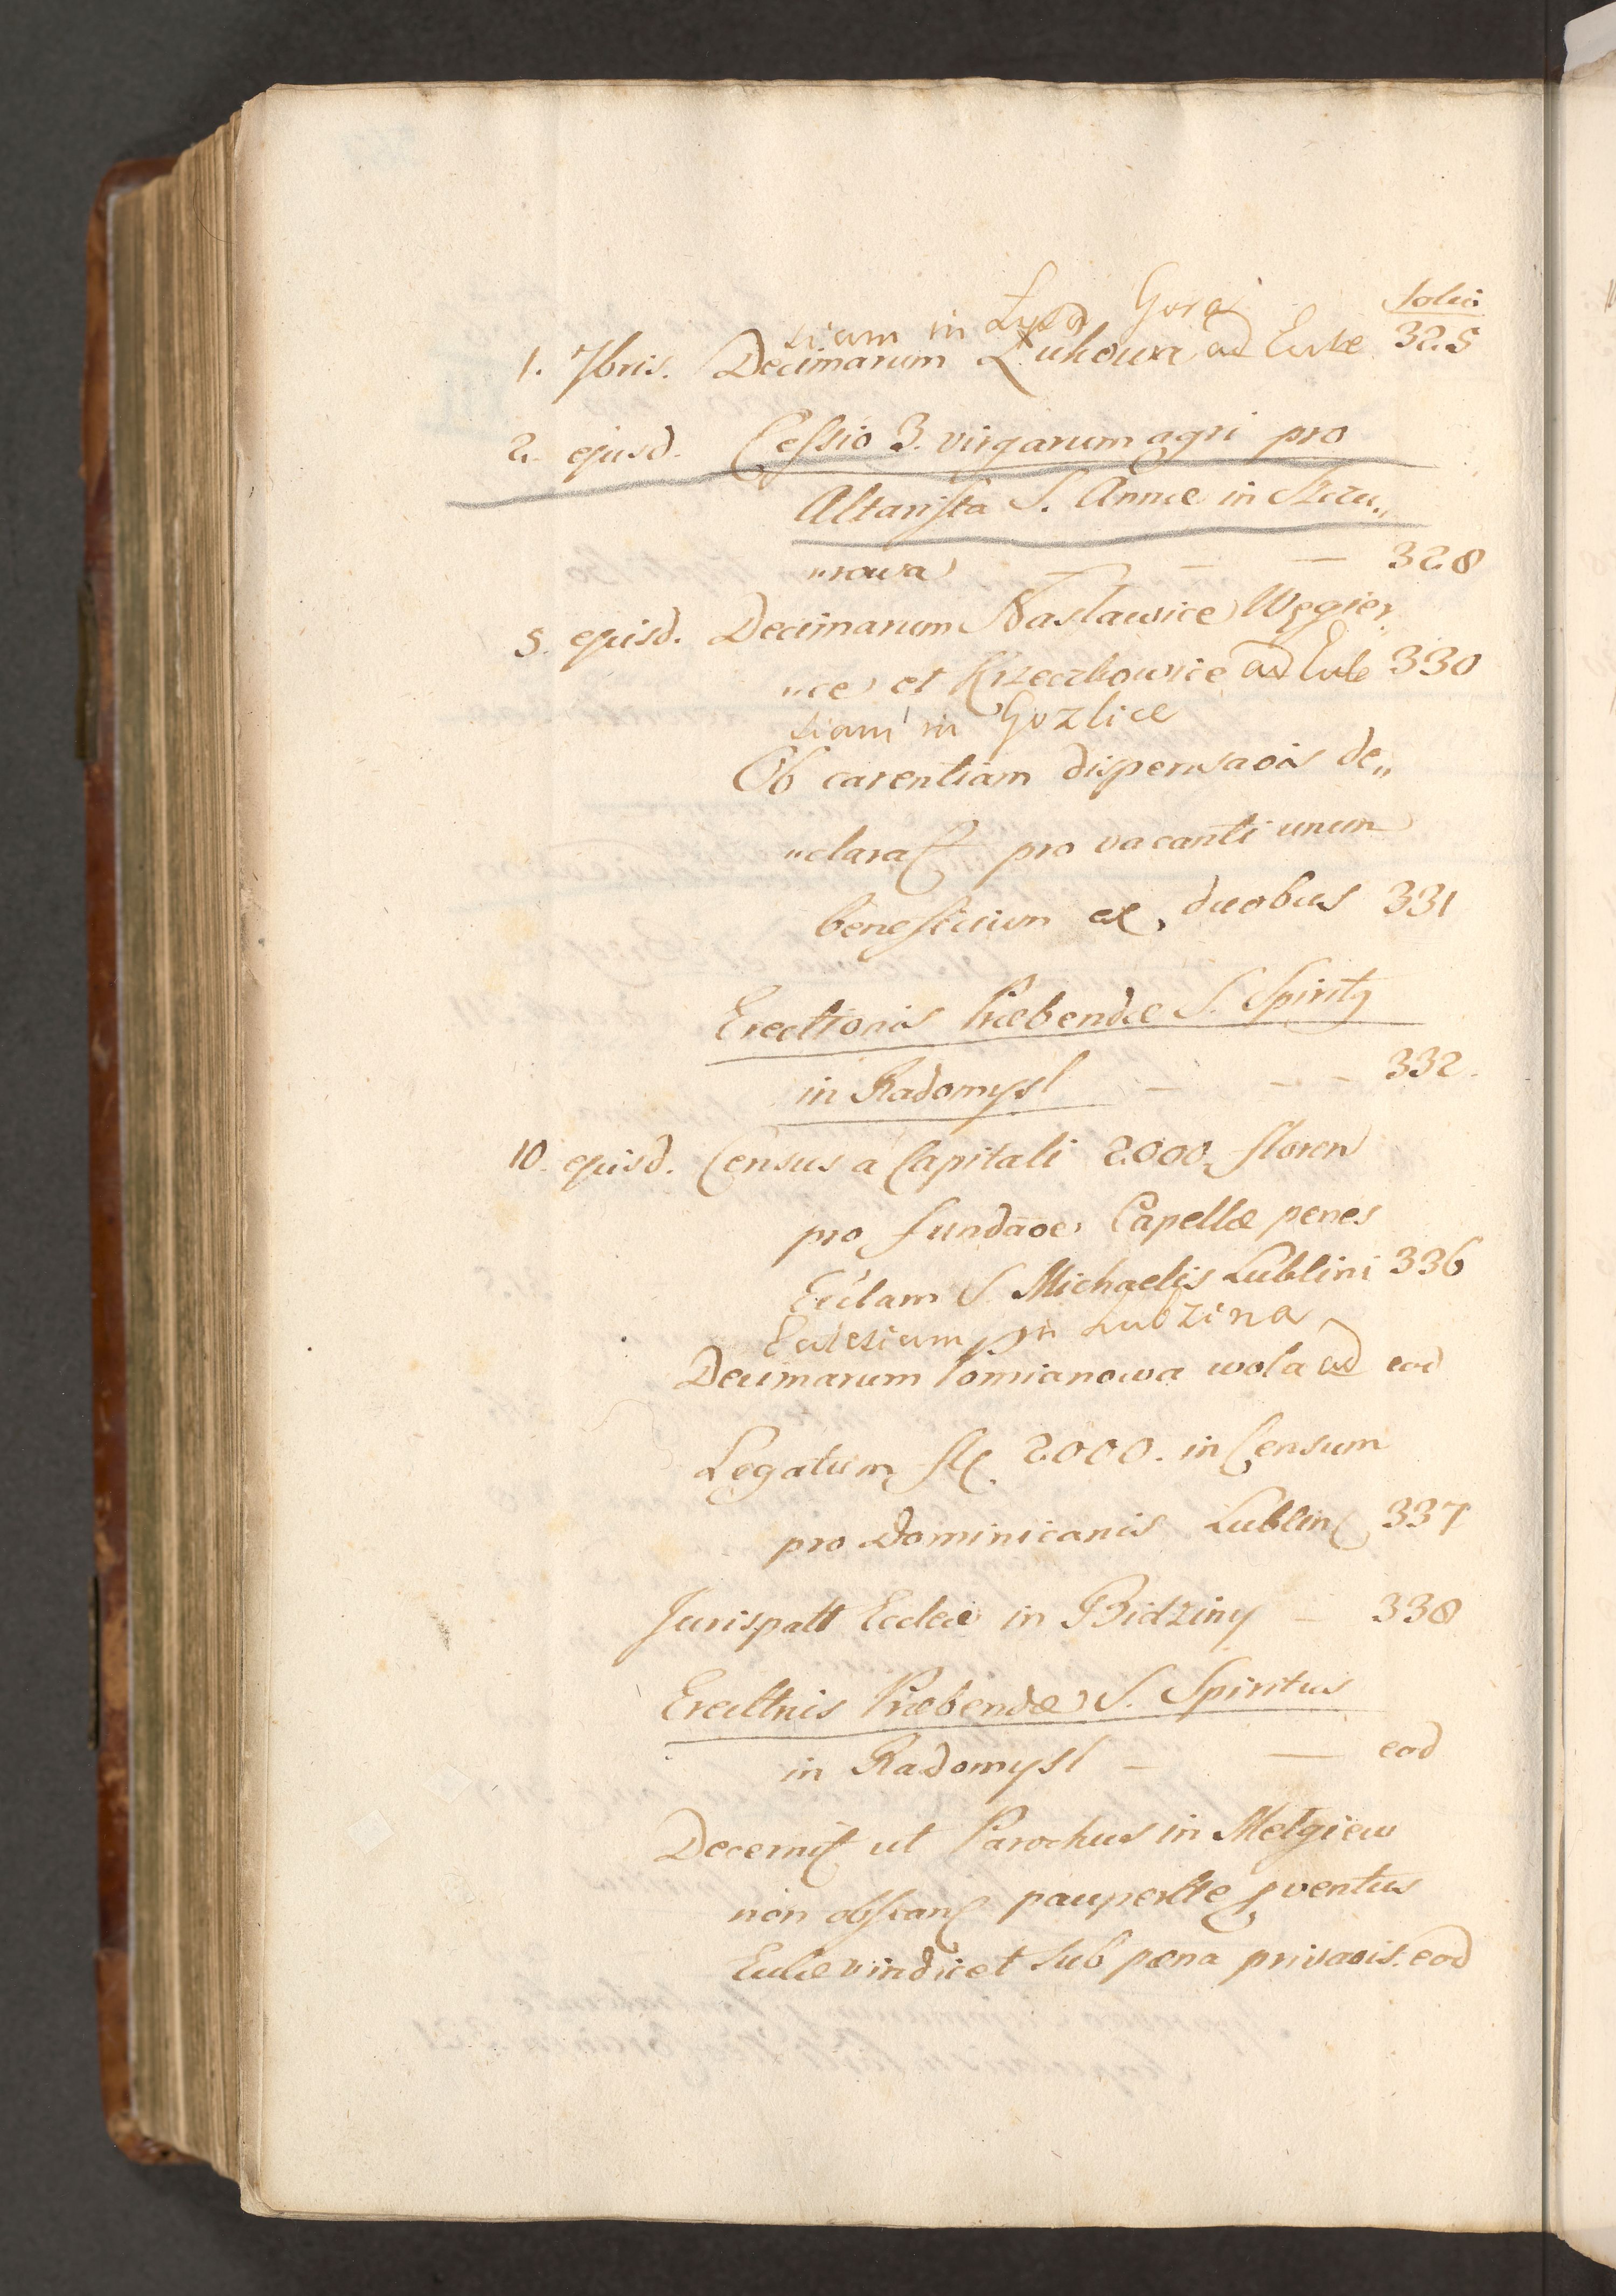 folio
siam in Łysa Gora
1. 7bris. Decimarum Lukowa ad Eccle 325
2. ejusd. Cessio 3. virgarum agri pro
Altarista S. Annæ in Szcu„
„rowa — — — 328
5. ejusd. Decimarum Nasławice Węgier„
„ce et Krzeczkowice ad Eccle 330
siam in Gozlice
Ob carentiam dispensaois de„
„clarat pro vacanti unum
beneficium ex duobus 331
Erectionis Præbendæ S. Spirit9
in Radomysl — — — 332.
10. ejusd. Census a Capitali 2000 floren
pro fundaoe Capellæ penes
Ecclam S. Michaelis Lublini 336
Ecclesiam in Lubzina
Decimarum Pomianowa wola ad eod
Legatum fl. 2000. in Censum
pro Dominicanis Lublin 337
Jurispatt Eccleæ in Bidziny — 338
Erecttnis Præbendæ S. Spiritus
in Radomysl — — eod
Decernit ut Parochus in Mełgiew
non obstan paupertte pventus
Eccliæ vindicet sub pæna privaois. eod